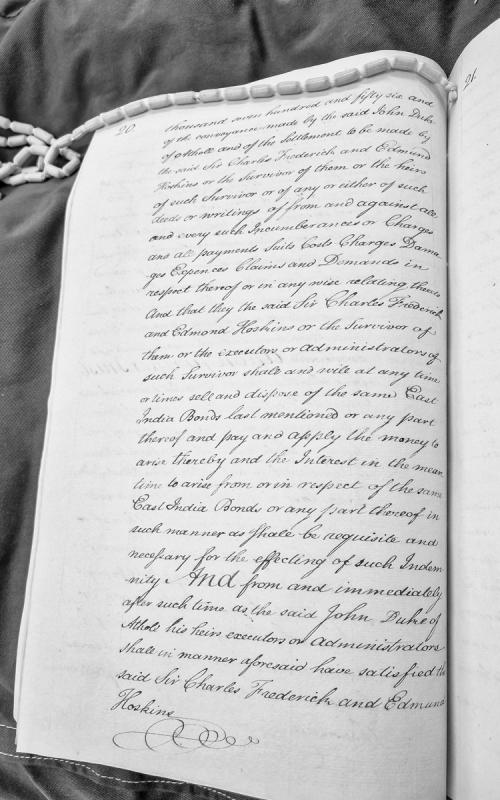 20.
thousand seven hundred and fifty six and
of the conveyance made by the said John Duke
of Atholl and of the Settlement to be made by
the said Sir Charles Frederick and Edmund
Hoskins or the Survivor of them or the heirs
of such Survivor or of any or either of such
deeds or writings of from and against all
and every such Incumberances or Charges
and all payments Suits Costs Charges Dama
ges Expences Claims and Demands in
respect thereof or in any wise relating thereto
And that they the said Sir Charles Frederick
and Edmond Hoskins or the Survivor of
them or the executors or administrators of
such Survivor shall and will at any time
or times sell and dispose of the same East
India Bonds last mentioned or any part
thereof and pay and apply the money to
arise thereby and the Interest in the mean
time to arise from or in respect of the same
East India Bonds or any part thereof in
such manner as shall be requisite and
necessary for the effecting of such Indem
nity And from and immediately
after such time as the said John Duke of
Atholl his heirs executors or administrators
shall in manner aforesaid have satisfied the
said Sir Charles Frederick and Edmund
Hoskins
21.